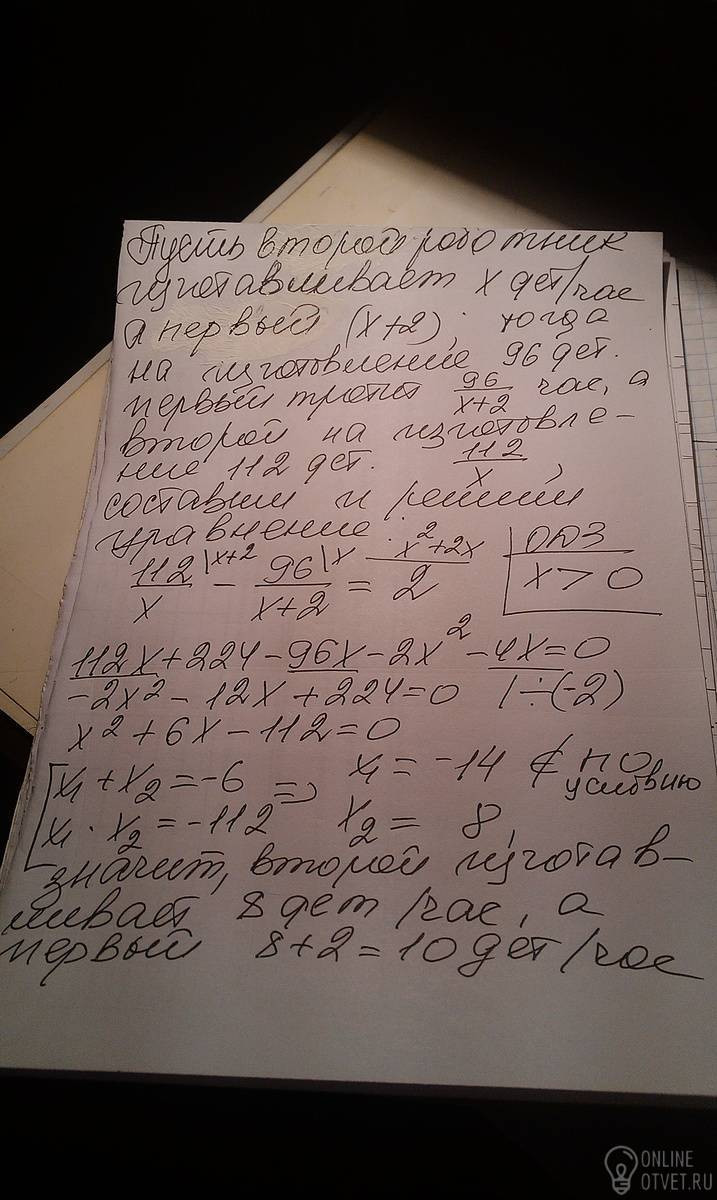 Пусть второй работник
изготавливает x дет/час
а первый (x+2), тогда
на изготовление 96 дет.
первый тратит 96/(x+2) час, а
второй на изготовле-
ние 112 дет. 112/x,
составим и решим
уравнение:
112/x |x+2 - 96/(x+2) |x = 2 |x²+2x
ОДЗ
x > 0
112x+224-96x-2x²-4x=0
-2x²-12x+224=0 |÷(-2)
x²+6x-112=0
[x₁+x₂=-6 => x₁=-14 ∉ по условию
x₁·x₂=-112 x₂=8,
значит, второй изготав-
ливает 8 дет/час, а
первый 8+2=10 дет/час
ONLINE
OTVET.RU